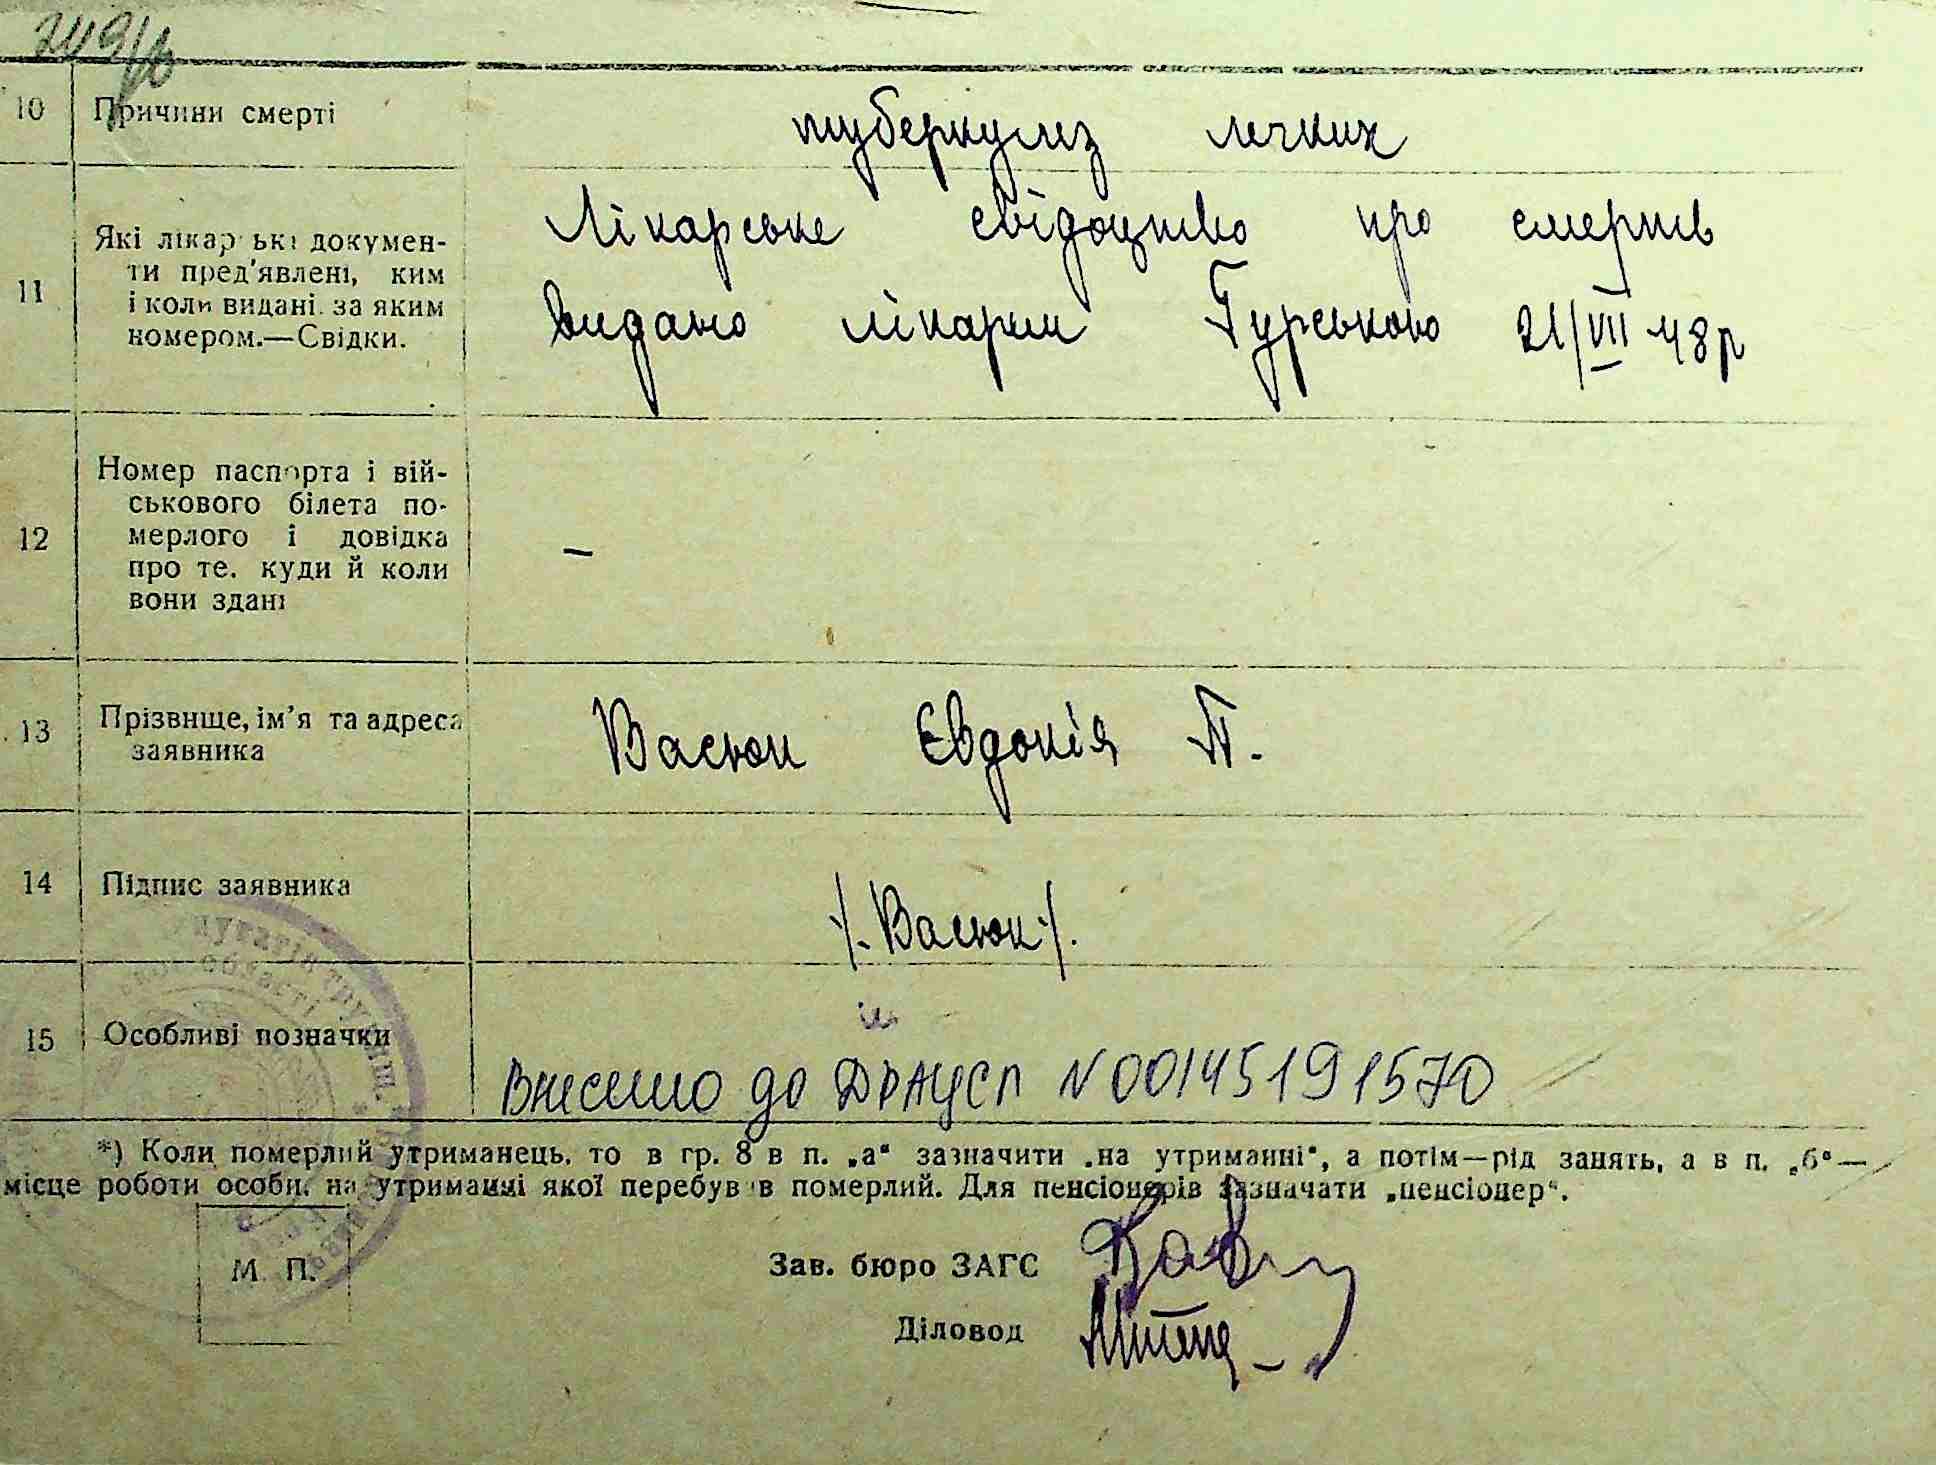 249/в
10 Причини смерті туберкульз легких
11 Які лікарські докумен-
ти пред'явлені, ким
і коли видані за яким
номером.—Свідки.
Лікарське свідоцтво про смерть
видано лікарем Гурською 21/VII 48 р
12 Номер паспорта і вій-
ськового білета по-
мерлого і довідка
про те, куди й коли
вони здані
–
13 Прізвище, ім'я та адреса
заявника
Васюк Євдокія П.
14 Підпис заявника
/. Васюк /.
15 Особливі позначки
Внесено до ДРАЦСГ N 00145191570
*) Коли померлий утриманець, то в гр. 8 в п. „а“ зазначити „на утриманні“, а потім—рід занять, а в п. „б“—
місце роботи особи, на утриманні якої перебував померлий. Для пенсіонерів зазначати „пенсіонер“.
М. П.
Зав. бюро ЗАГС
Діловод
депутатів трудящ.
області